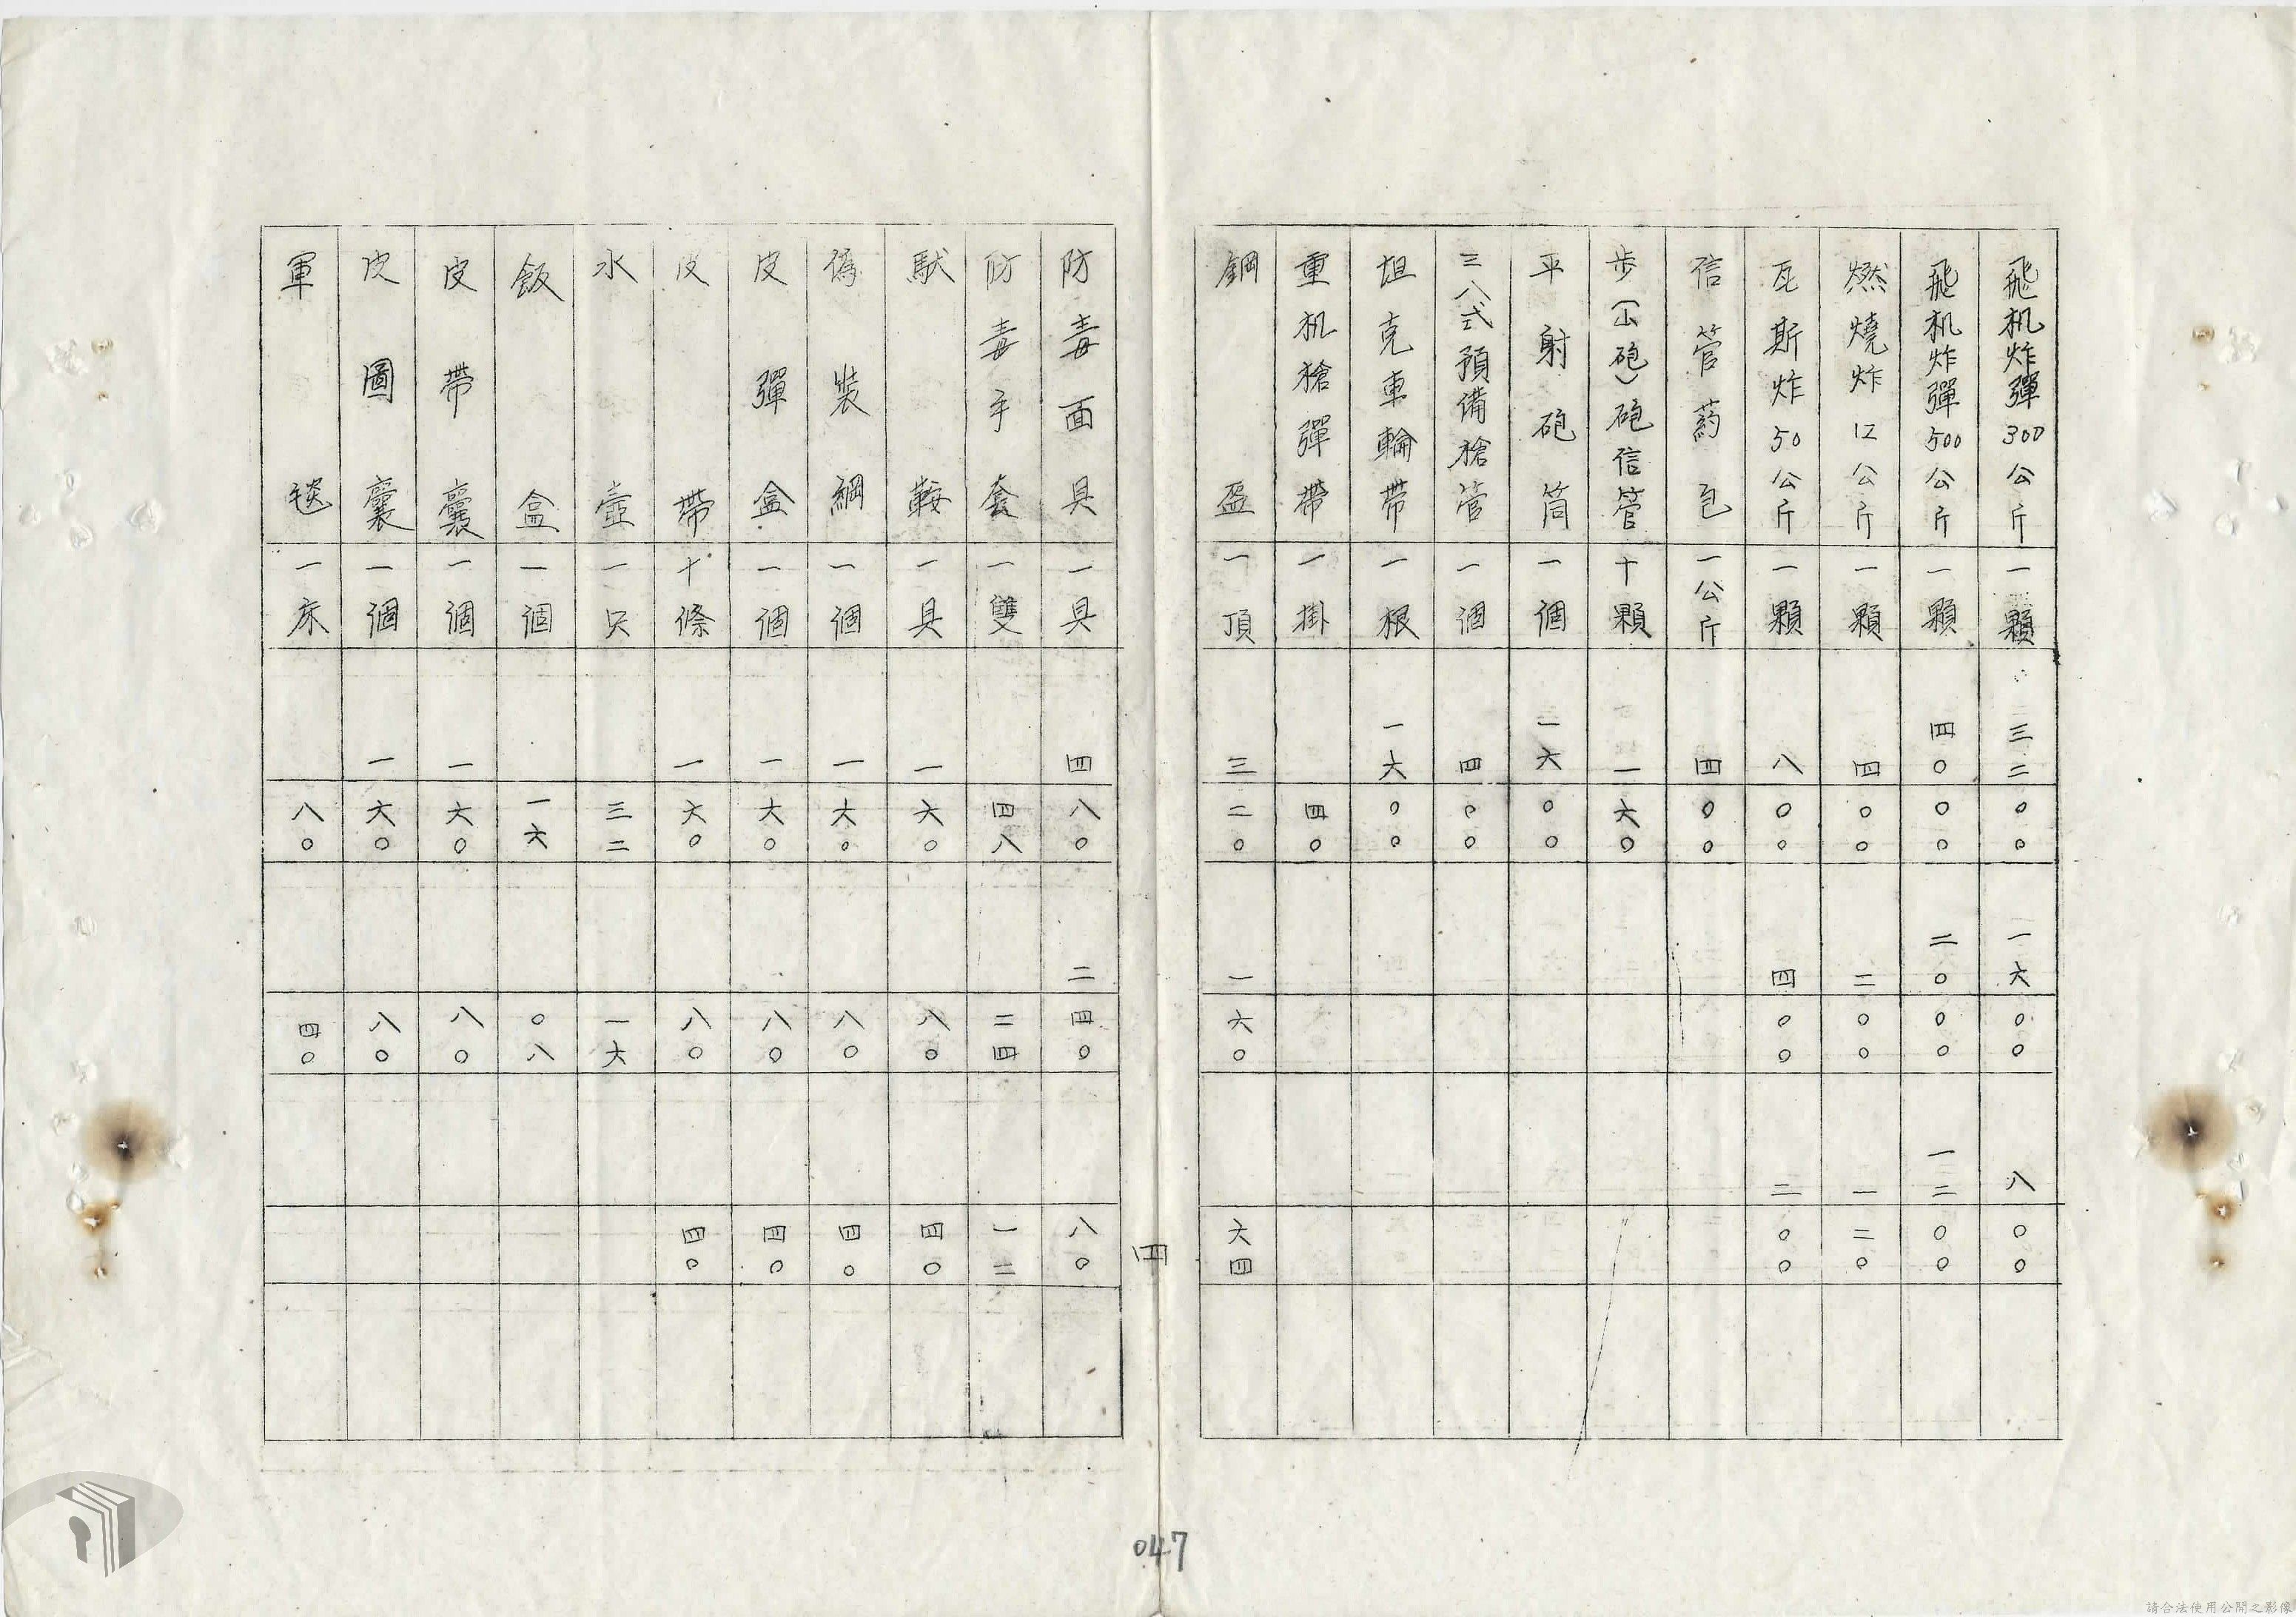 飛机炸彈300公斤 一顆 三二〇〇 一六〇〇 八〇〇
飛机炸彈500公斤 一顆 四〇〇〇 二〇〇〇 一二〇〇
燃燒炸12公斤 一顆 四〇〇 二〇〇 一二〇
瓦斯炸50公斤 一顆 八〇〇 四〇〇 二〇〇
信管葯包 一公斤 四〇〇
步(山砲)砲信管 十顆 一六〇
平射砲筒 一個 一六〇〇
三八式預備槍管 一個 四〇〇
坦克車輪帶 一根 一六〇〇
重机槍彈帶 一掛 四〇
鋼盔 一頂 三二〇 一六〇 六四
四
防毒面具 一具 四八〇 二四〇 八〇
防毒手套 一雙 四八 二四 一二
馱鞍 一具 一六〇 八〇 四〇
偽裝網 一個 一六〇 八〇 四〇
皮彈盒 一個 一六〇 八〇 四〇
皮帶 十條 一六〇 八〇 四〇
水壺 一只 三二 一六
飯盒 一個 一六 〇八
皮帶囊 一個 一六〇 八〇
皮圖囊 一個 一六〇 八〇
軍毯 一床 八〇 四〇
047
請合法使用公開之影像